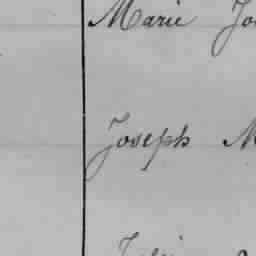 Marie Jo
Joseph M